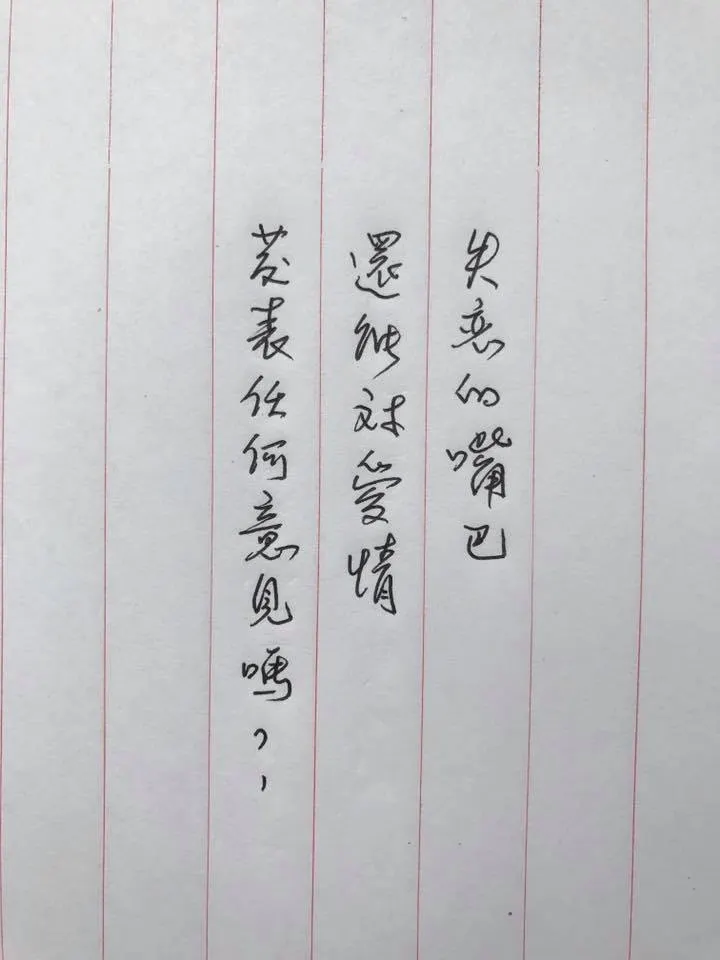 失恋的嘴巴
還能対愛情
发表任何意見嗎？